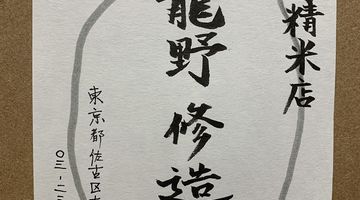 精米店
龍野 修造
東京都佐古区
〇三-二三